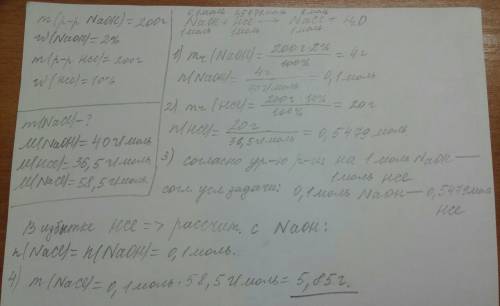 m(р-р NaOH) = 200г
w(NaOH) = 2%
m(р-р HCl) = 200г
w(HCl) = 10%
m(NaCl) - ?
M(NaOH) = 40 г/моль
M(HCl) = 36,5 г/моль
M(NaCl) = 58,5 г/моль
NaOH + HCl → NaCl + H₂O
1моль 1моль 1моль
1) mr(NaOH) = 200г·2% / 100% = 4г
n(NaOH) = 4г / 40 г/моль = 0,1 моль
2) mr(HCl) = 200г·10% / 100% = 20г
n(HCl) = 20г / 36,5 г/моль = 0,5479 моль
3) согласно ур-ю р-ии на 1 моль NaOH —
1моль HCl
согл. усл. задачи: 0,1 моль NaOH — 0,5479 моль
HCl
В избытке HCl => рассчит. с NaOH:
n(NaCl) = n(NaOH) = 0,1 моль.
4) m(NaCl) = 0,1 моль · 58,5 г/моль = 5,85 г.